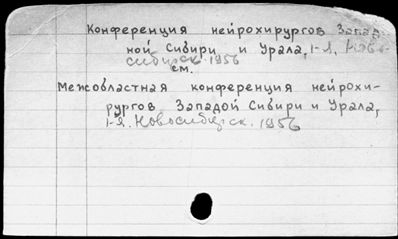 Конференция нейрохирургов Запад-
ной Сибири и Урала, 1-я, Ново-
сибирск. 1956
см.
Межобластная конференция нейрохи-
рургов Западой Сибири и Урала,
1-я. Новосибирск. 1956